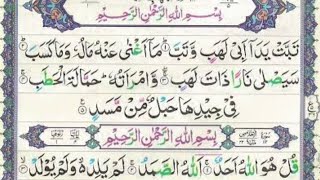 بِسْمِ اللهِ الرَّحْمٰنِ الرَّحِيْمِ
تَبَّتْ يَدَآ اَبِيْ لَهَبٍ وَّتَبَّ ۝١ مَآ اَغْنٰى عَنْهُ مَالُهٗ وَمَا كَسَبَ ۝٢
سَيَصْلٰى نَارًا ذَاتَ لَهَبٍ ۝٣ وَّامْرَاَتُهٗ ؕ حَمَّالَةَ الْحَطَبِ ۝٤
فِيْ جِيْدِهَا حَبْلٌ مِّنْ مَّسَدٍ ۝٥
بِسْمِ اللهِ الرَّحْمٰنِ الرَّحِيْمِ
قُلْ هُوَ اللهُ اَحَدٌ ۝١ اَللهُ الصَّمَدُ ۝٢ لَمْ يَلِدْ ۙ وَلَمْ يُوْلَدْ ۝٣